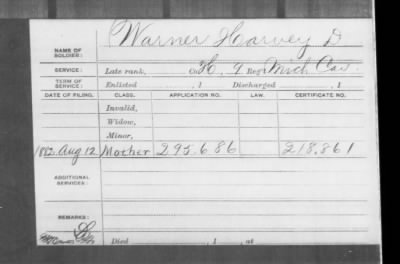 NAME OF SOLDIER: Warner Harvey D
SERVICE: Late rank, Co. H, 9 Reg't Mich Cav.
TERM OF SERVICE: Enlisted , 1 Discharged , 1
DATE OF FILING. CLASS. APPLICATION NO. LAW. CERTIFICATE NO.
Invalid,
Widow,
Minor,
1882 Aug 12 Mother 295.686 218.861
ADDITIONAL SERVICES:
REMARKS:
Died , 1 , at